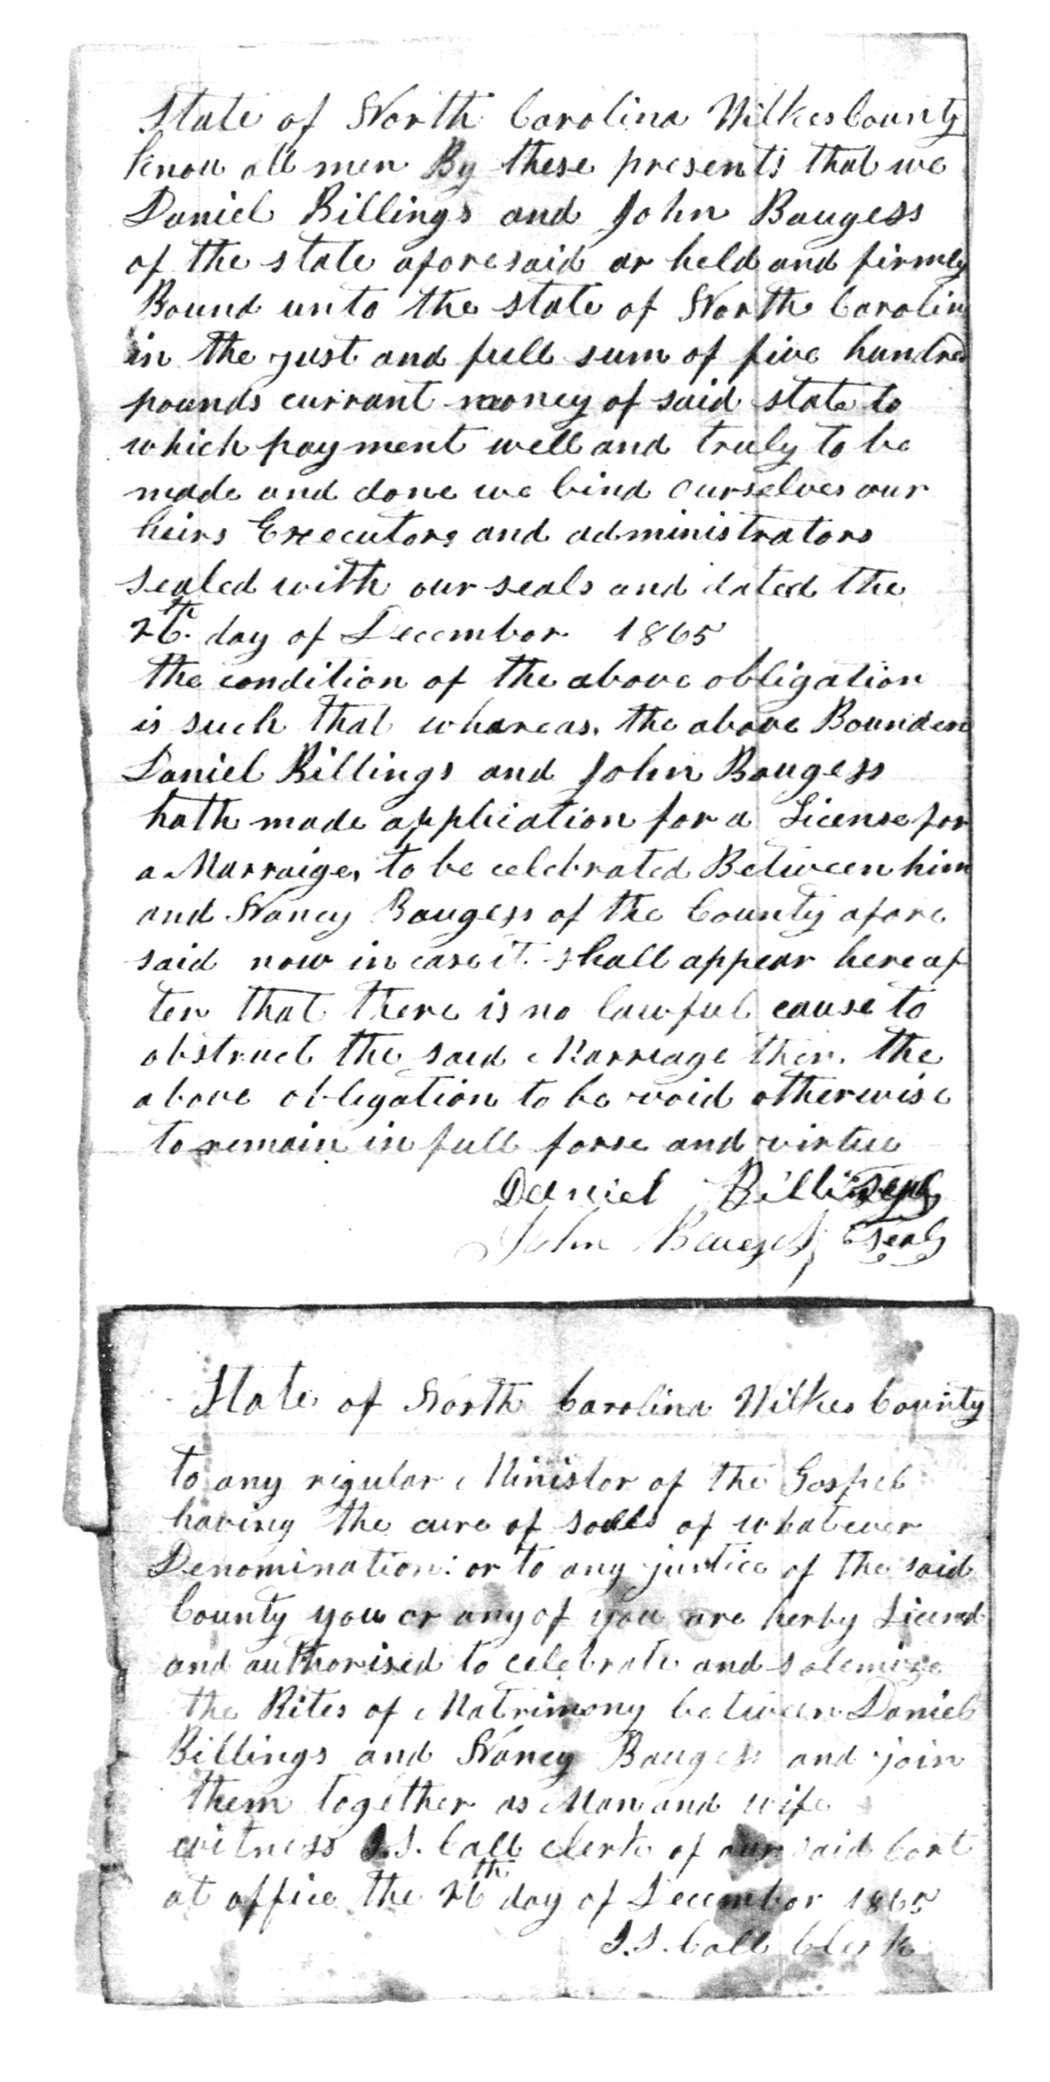 State of North Carolina Wilkes County
know all men By these presents that we
Daniel Billings and John Baugess
of the state aforesaid ar held and firmly
Bound unto the state of North Carolin
in the just and full sum of five hundred
pounds currant money of said state to
which payment well and truly to be
made and done we bind ourselves our
heirs Executors and administrators
sealed with our seals and dated the
26th day of December 1865
the condition of the above obligation
is such that whareas, the above Bounden
Daniel Billings and John Baugess
hath made application for a License for
a Marraige, to be celebrated Between him
and Nancy Baugess of the County afore
said now in case it shall appear hereaf
ter that there is no lawful cause to
obstruct the said Marreage then the
above obligation to be void otherwise
to remain in full forse and virtue
Daniel Billings seal
John Baugess seal
State of North Carolina Wilkes County
to any rigular Minister of the Gospel
having the cure of solls of whatever
Denomination: or to any justice of the said
County you or any of you are herby Licensd
and authorised to celebrate and solemize
the Rites of Matrimony between Daniel
Billings and Nancy Baugess and join
them together as Man and wife
witness J.S. Call clerk of our said Cort
at office the 26th day of December 1865
J.S. Call Clerk